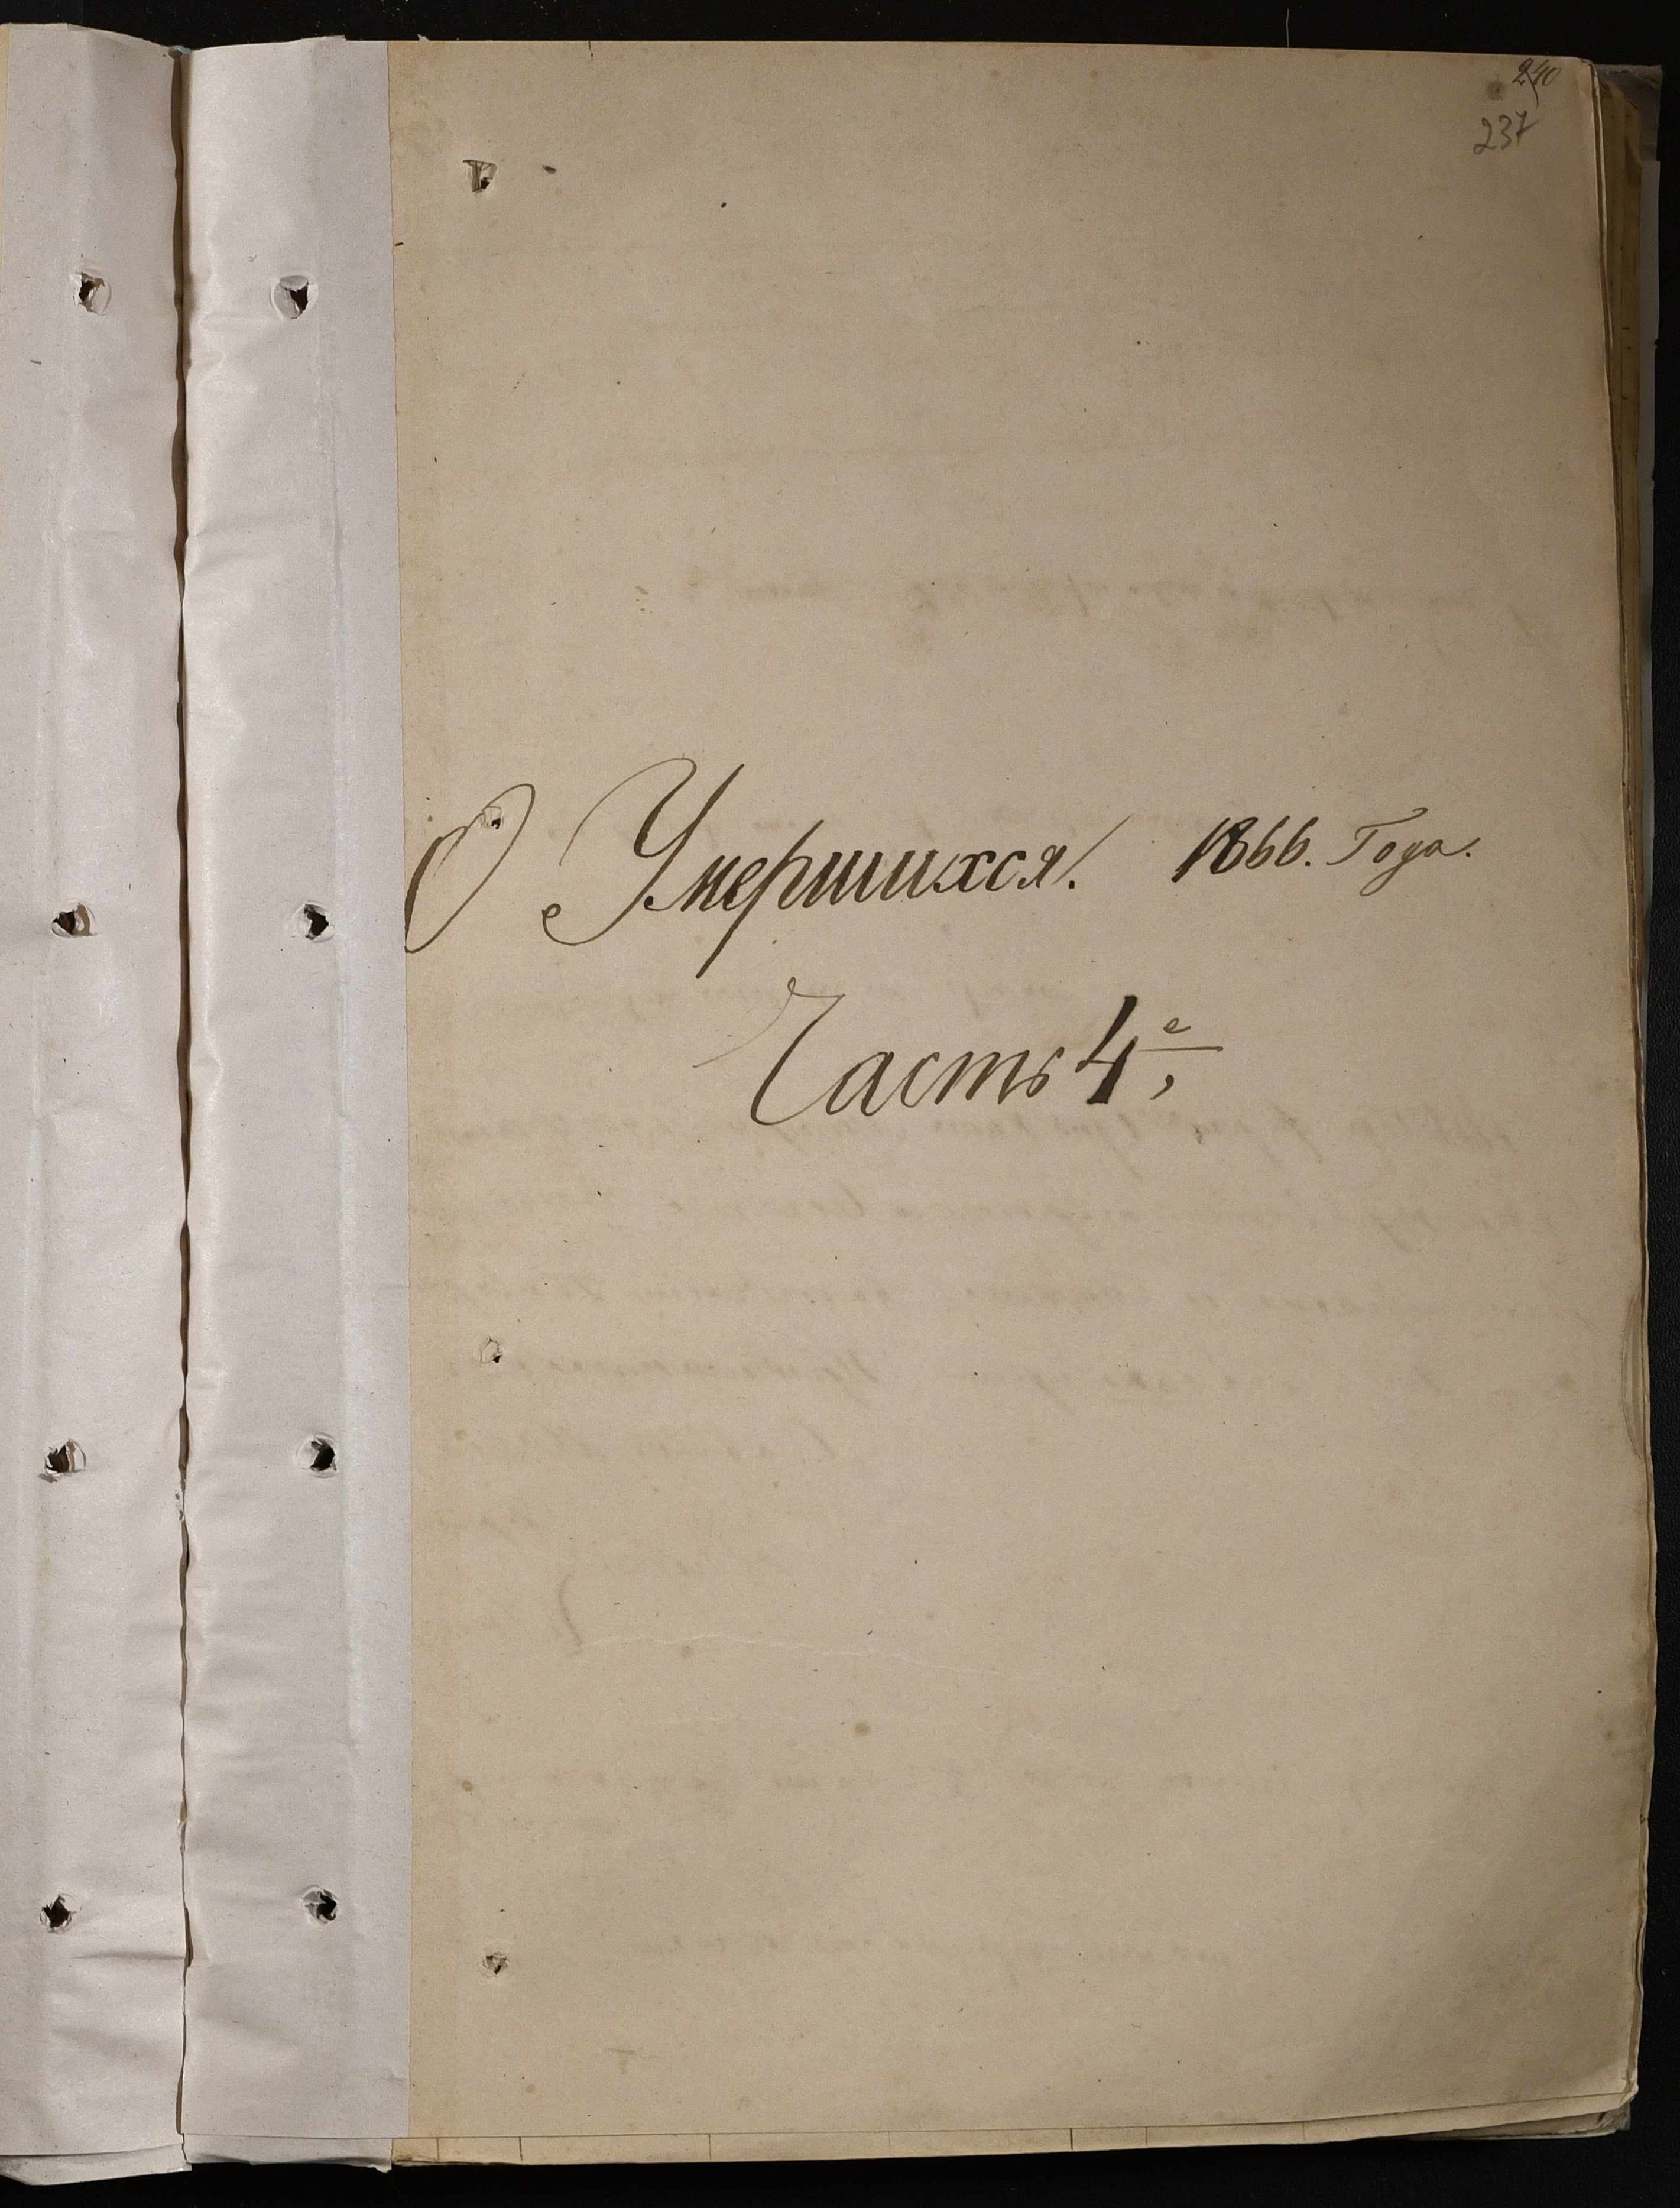 240
237
О Умершихся. 1866. Года.
Часть 4е,